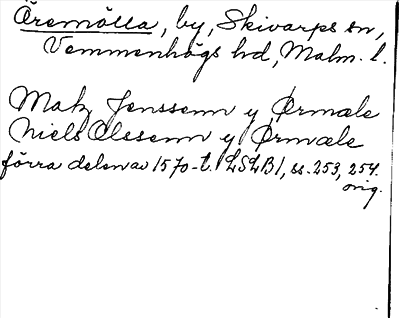 Öremölla, by, Skivarps sn,
Vemmenhögs hd, Malm. l.
Matz Jenssenn y Ørmøle
Niels Olessenn y Ørmøle
förra delen av 1570-t. LSLB 1, ss. 253, 254.
orig.